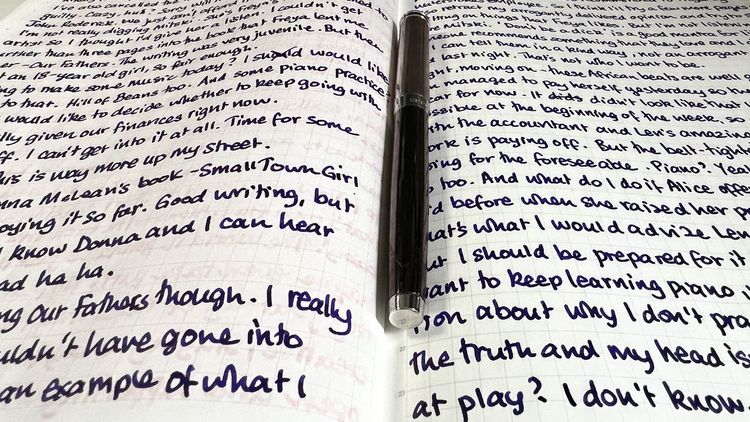 guilty. Crazy.
John. Generick. We just don't
I'm not really digging Mitski. She's Freya's
artist so I thought I'd give her a listen. I couldn't get
more than three pages into the book that Freya lent me
er - Our Fathers. The writing was very juvenile. But then
t an 18-year old girl, so fair enough.
ng to make some music today? I would like
to that. Hill of Beans too. And some piano practice -
I would like to decide whether to keep going with
lly given our finances right now.
ff. I can't get into it at all. Time for some
his is way more up my street.
nna McLean's book - Small Town Girl
oying it so far. Good writing, but
I know Donna and I can hear
ad ha ha.
ng Our Fathers though. I really
uldn't have gone into
an example of what I
opinion and
good months. For
I can tell them in a kind way, not an arrogant
last night. That's not who I want to be.
ght, moving on - these African beats are well
managed to pay herself yesterday so
ear for now. It didn't look like that
ssible at the beginning of the week, so
ith the accountant and Len's amazing
ork is paying off. But the belt-tight
oing for the foreseeable. Piano? Yea
too. And what do I do if Alice offe
'd before when she raised her p
hat's what I would advise Len
ut I should be prepared for it
want to keep learning piano,
tion about why I don't pra
the truth and my head is
at play? I don't know.
22
23